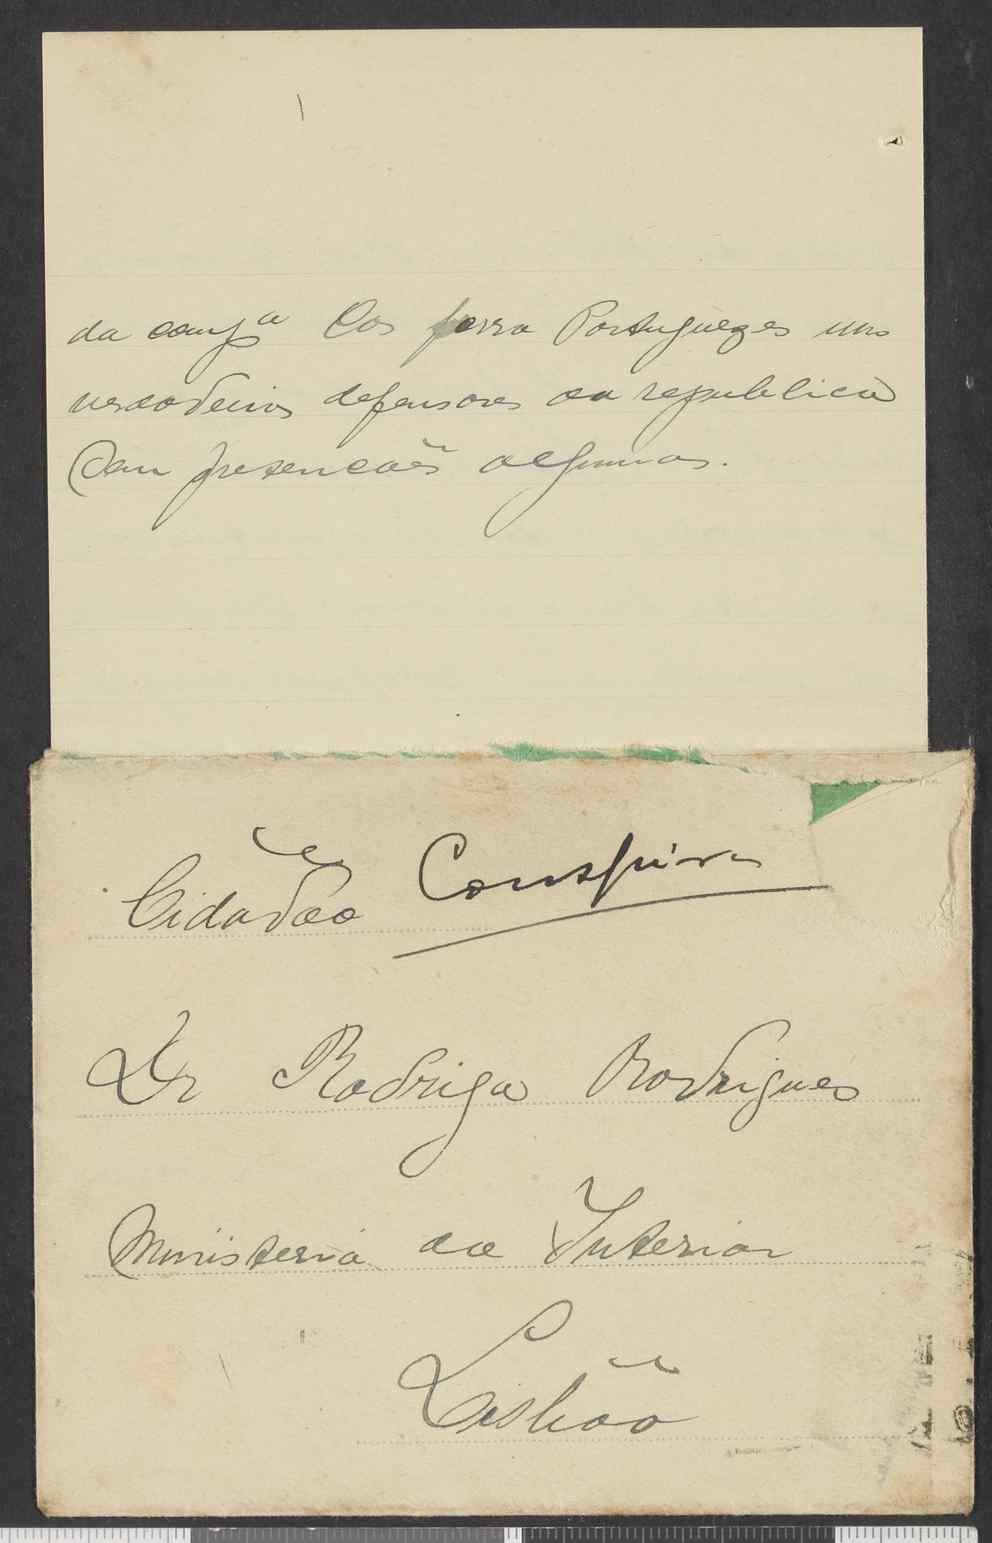 da comp.a Cos ferro Portuguezes uns
verdodeiros defensores da republica
Sem pretencoẽs algumas.
Cidadão Conspira
Dr Rodrigo Rodrigues
Ministerio do Interior
Lisbõo